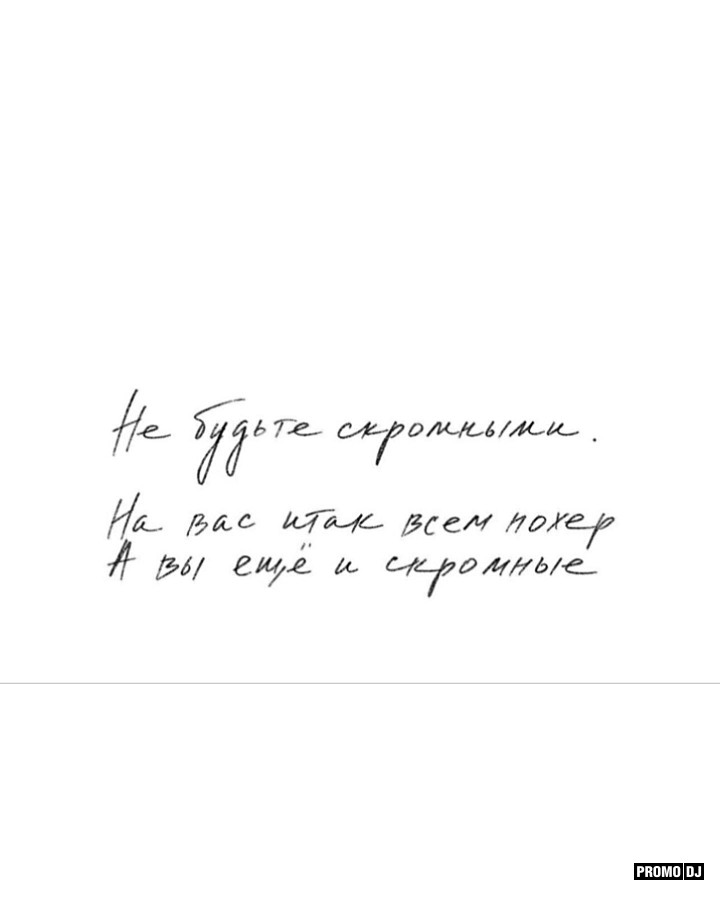 Не будьте скромными.
На вас итак всем похер
А вы ещё и скромные
PROMO DJ